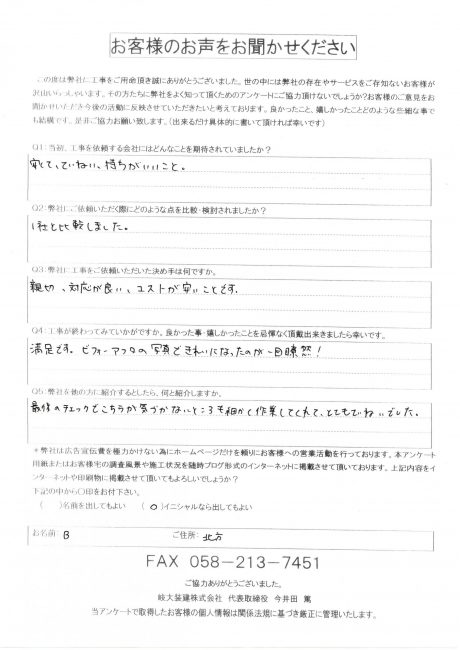 お客様のお声をお聞かせください
この度は弊社に工事をご用命頂き誠にありがとうございました。世の中には弊社の存在やサービスをご存知ないお客様が
沢山いらっしゃいます。その方たちに弊社をよく知って頂くためのアンケートにご協力頂けないでしょうか?お客様のご意見をお
聞かせいただき今後の活動に反映させていただきたいと考えております。良かったこと、嬉しかったことどのような些細な事で
も結構です。是非ご協力お願い致します。(出来るだけ具体的に書いて頂ければ幸いです)
Q1:当初、工事を依頼する会社にはどんなことを期待されていましたか?
安くて、ていねい、持ちがいいこと。
Q2:弊社にご依頼いただく際にどのような点を比較・検討されましたか?
1社と比較しました。
Q3:弊社に工事をご依頼いただいた決め手は何ですか。
親切、対応が良い、コストが安いことです。
Q4:工事が終わってみていかがですか。良かった事・嬉しかったことを忌憚なく頂戴出来きましたら幸いです。
満足です。ビフォーアフターの写真できれいになったのが一目瞭然!
Q5:弊社を他の方に紹介するとしたら、何と紹介しますか。
最後のチェックでこちらが気づかないところも細かく作業してくれて、とてもていねいでした。
*弊社は広告宣伝費を極力かけない為にホームページだけを頼りにお客様への営業活動を行っております。本アンケート
用紙またはお客様宅の調査風景や施工状況を随時ブログ形式のインターネットに掲載させて頂いております。上記内容をイ
ンターネットや印刷物に掲載させて頂いてもよろしいでしょうか?
下記の中から○印をお付下さい。
( )名前を出してもよい ( ○ )イニシャルなら出してもよい
お名前: B ご住所: 北方
FAX 058-213-7451
ご協力ありがとうございました。
岐大装建株式会社 代表取締役 今井田 篤
当アンケートで取得したお客様の個人情報は関係法規に基づき厳正に管理いたします。